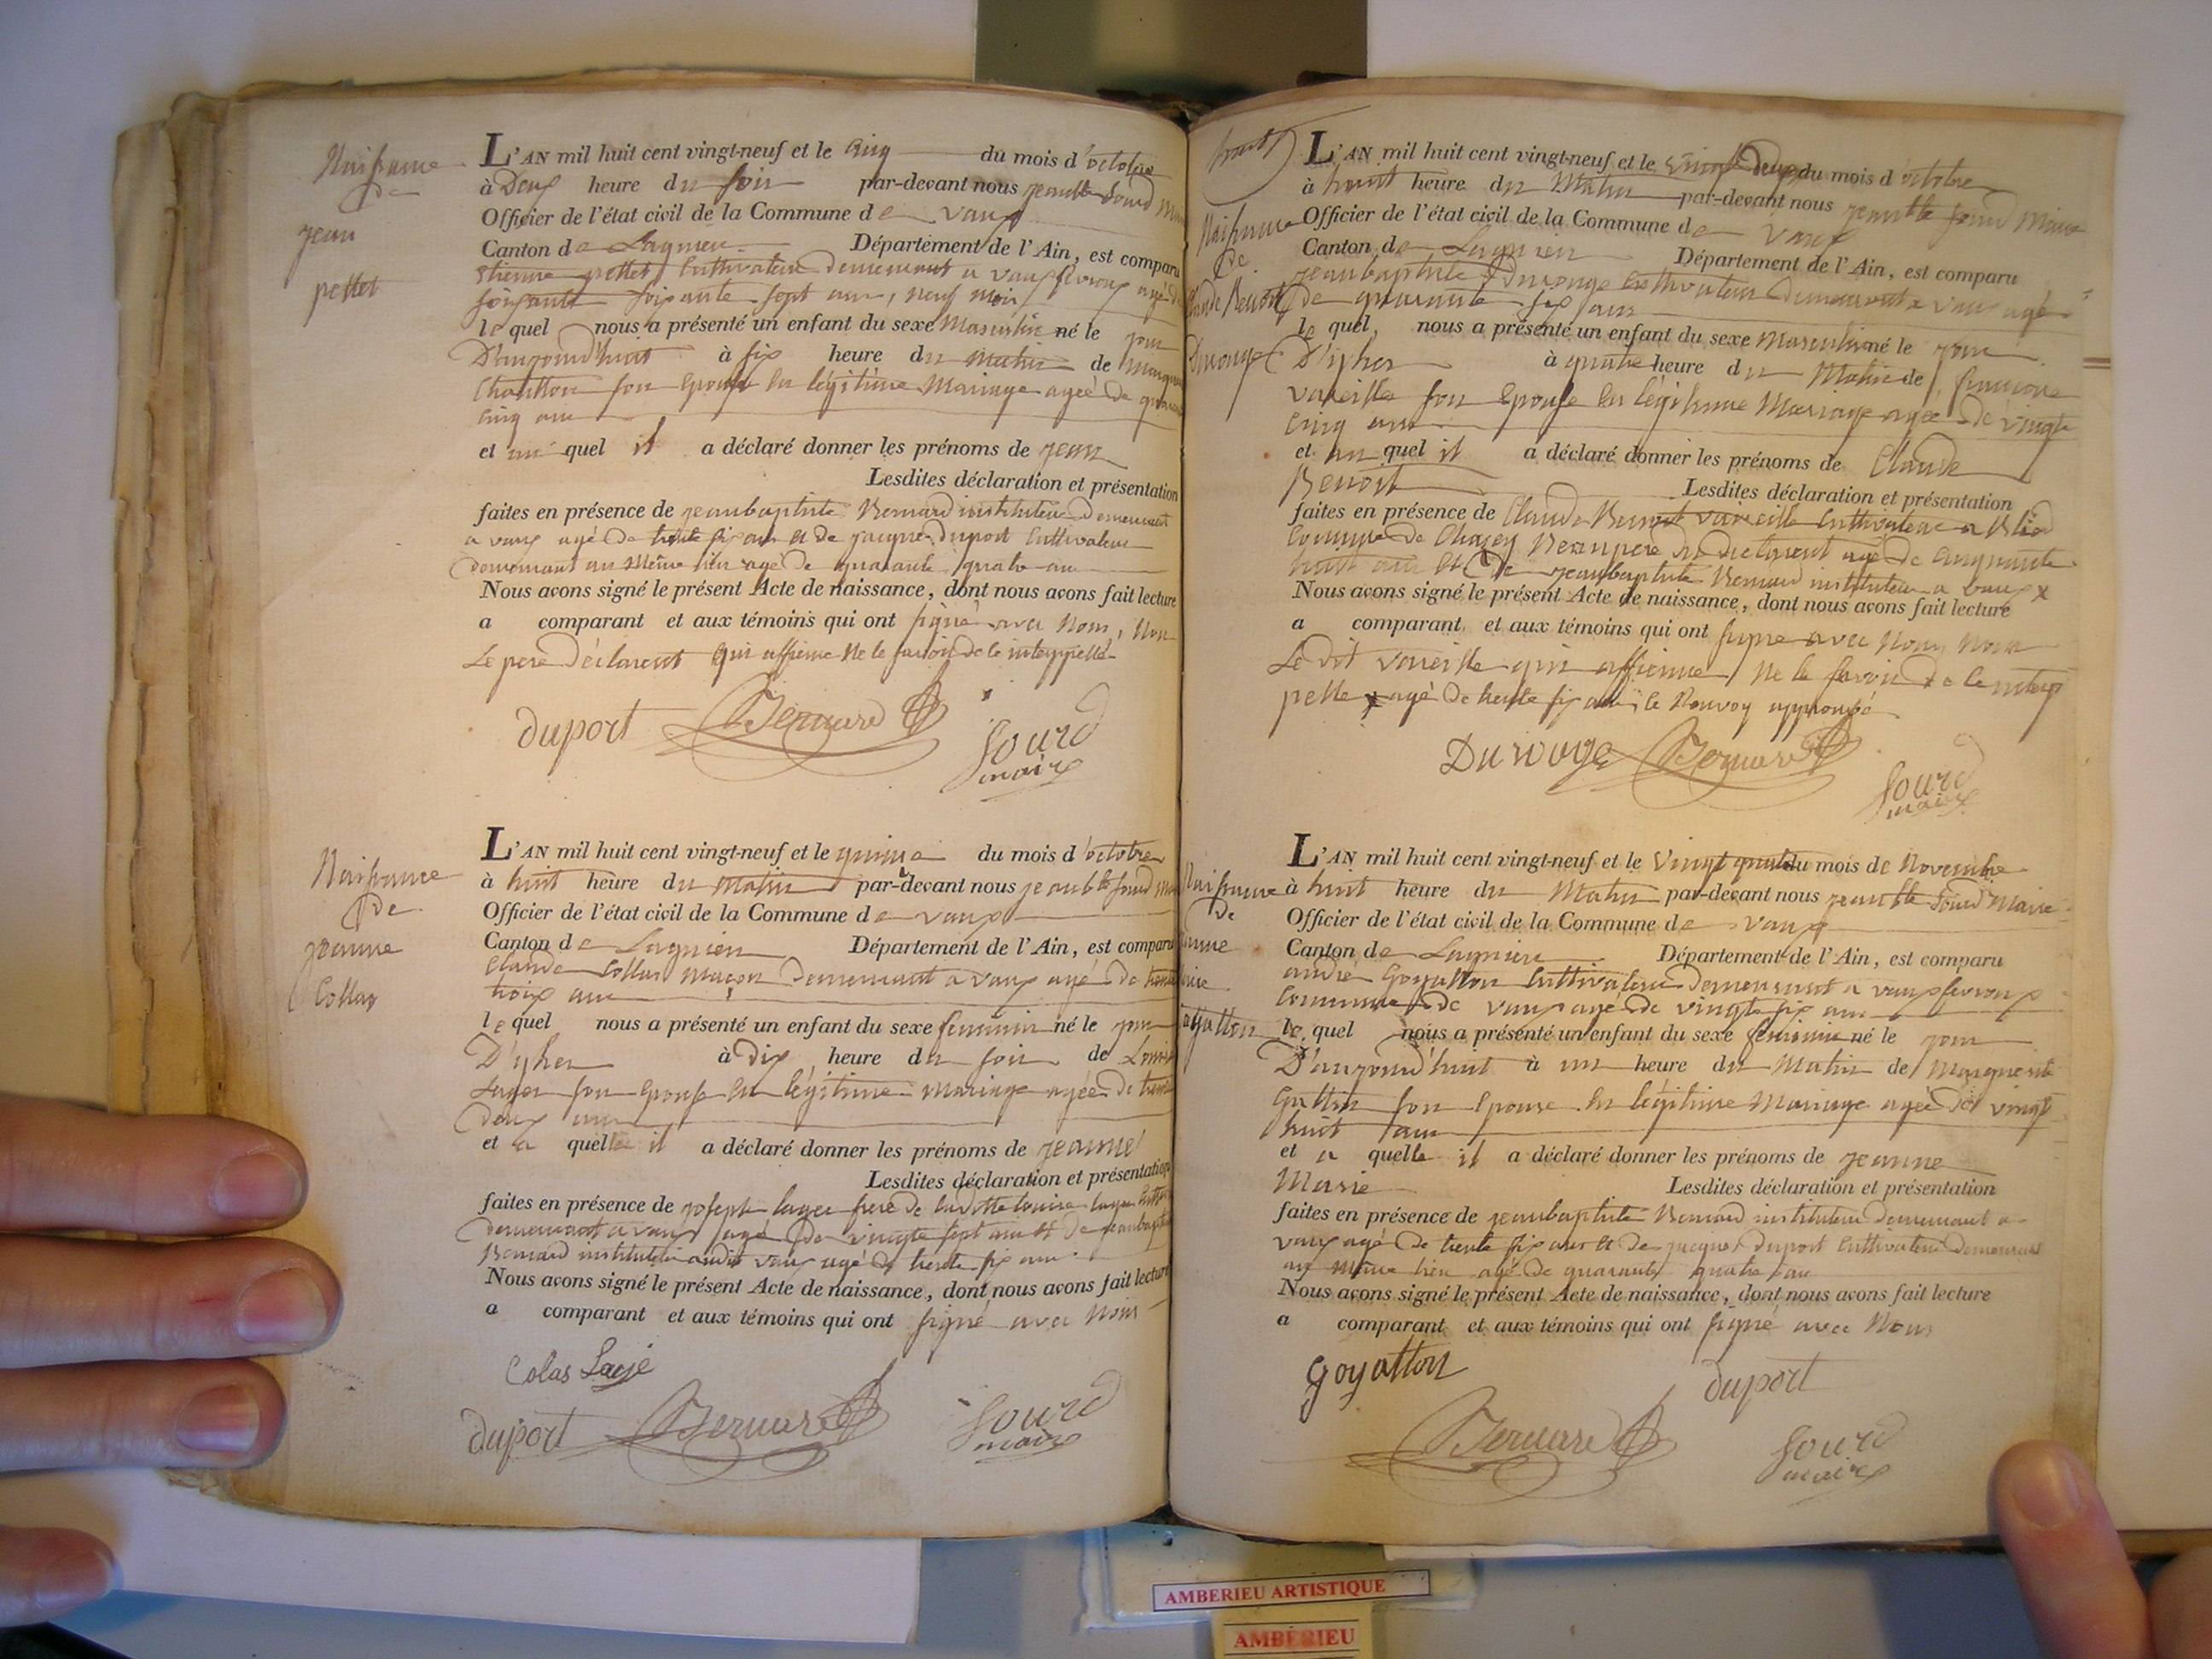 Naissance
de
jean
pettet
L'AN mil huit cent vingt-neuf et le cinq du mois d'octobre
à Deux heure du soir par-devant nous jean bte Sourd
Officier de l'état civil de la Commune de vaux
Canton de Lagnieu Département de l'Ain, est comparu
etienne pettet Cultivateur demeurant a vaux fevroux agé de
soixante sept ans, neuf mois
lequel nous a présenté un enfant du sexe Masculin né le jour
D'aujourd'huit à six heure du matin de
Chatillon son Epouse En légitime Mariage ageé de
Cinq ans
et au quel il a déclaré donner les prénoms de jean
Lesdites déclaration et présentation
faites en présence de jeanbaptiste Bernard instituteur Demeurant
a vaux agé de trente six ans et de jacque duport Cultivateur
demeurant au Même lieu agé de quarante quatre ans
Nous avons signé le présent Acte de naissance, dont nous avons fait lecture
a comparant et aux témoins qui ont signé avec Nous, Non
Le pere Déclarent qui affirme Ne le savoir de ce interppellé
duport Bernard Sourd
maire
Naissance
de
jeanne
Collas
L'AN mil huit cent vingt-neuf et le quinze du mois d'octobre
à huit heure du matin par-devant nous jean bte Sourd
Officier de l'état civil de la Commune de vaux
Canton de Lagnieu Département de l'Ain, est comparu
Claude Collas Maçon demeurant a vaux agé de trente
trois ans
lequel nous a présenté un enfant du sexe feminin né le jour
D'yher à dix heure du soir de Louise
Lager son Epouse En légitime mariage ageé de trente
deux ans
et a quelle il a déclaré donner les prénoms de jeanne
Lesdites déclaration et présentation
faites en présence de joseph lager frere de laditte louise lager
demeurant a vaux agé de vingte sept ans et de jeanbaptiste
Bernard instituteur audit vaux agé de trente six ans
Nous avons signé le présent Acte de naissance, dont nous avons fait lecture
a comparant et aux témoins qui ont signé avec Nous
Colas Lagé
duport Bernard Sourd
maire
Naissance
de
Claude Benoit
Durouge
L'AN mil huit cent vingt-neuf et le vingt Deux du mois d'octobre
à huit heure du Matin par-devant nous jean bte Sourd Maire
Officier de l'état civil de la Commune de Vaux
Canton de Lagnieu Département de l'Ain, est comparu
jeanbaptiste Durouge Cultivateur demeurant a vaux agé
de quarante six ans
lequel, nous a présenté un enfant du sexe Masculin né le jour
D'yher à quatre heure du Matin de françoise
vareille son Epouse En légitime Mariage ageé de vingte
Cinq ans
et au quel il a déclaré donner les prénoms de Claude
Benoit Lesdites déclaration et présentation
faites en présence de Claude Benoit vareille Cultivateur a
Commune de Chazey Beaupere du declarent agé de cinquante
huit ans et De jeanbaptiste Bernard instituteur a vaux x
Nous avons signé le présent Acte de naissance, dont nous avons fait lecture
a comparant et aux témoins qui ont signé avec Nous, Non
Le Dit vareille qui affirme Ne le savoir de ce interp
pelle x agé de trente six ans, le Renvoy approuvé
Durouge Bernard Sourd
maire
Naissance
de
L'AN mil huit cent vingt-neuf et le Vingt quatre du mois de Novembre
à huit heure du Matin par-devant nous jean bte Sourd Maire
Officier de l'état civil de la Commune de vaux
Canton de Lagnieu Département de l'Ain, est comparu
andré Goyatton Cultivateur demeurant a vaux fevroux
Commune de vaux agé de vingt six ans
lequel nous a présenté un enfant du sexe feminin né le jour
D'aujourd'huit à un heure du Matin de Marguerite
son Epouse En légitime Mariage ageé de vingt
huit ans
et a quelle il a déclaré donner les prénoms de jeanne
Marie Lesdites déclaration et présentation
faites en présence de jeanbaptiste Bernard instituteur demeurant a
vaux agé de trente six ans et de jacque duport Cultivateur demeurant
au Même lieu agé de quarante quatre ans
Nous avons signé le présent Acte de naissance, dont nous avons fait lecture
a comparant et aux témoins qui ont signé avec Nous
goyatton duport
Bernard Sourd
maire
AMBERIEU ARTISTIQUE
AMBERIEU